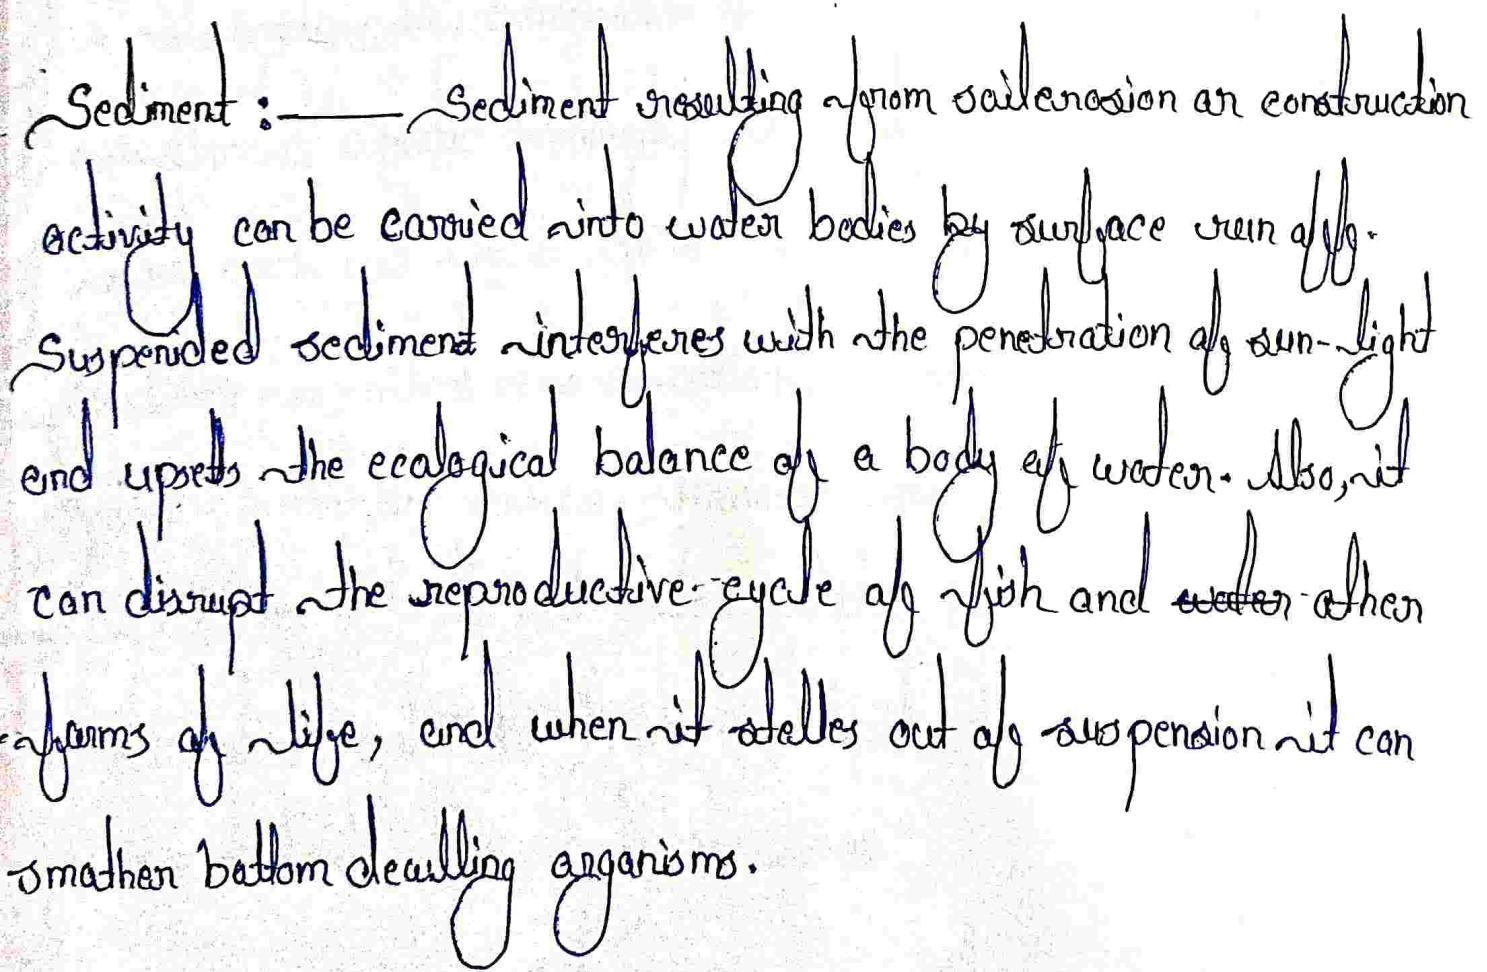 Sediment :— Sediment resulting from soilerosion or construction
activity can be carried into water bodies by surface run off.
Suspended sediment interferes with the penetration of sun-light
and upsets the ecological balance of a body of water. Also, it
can disrupt the reproductive-cycle of fish and water other
forms of life, and when it stelles out of suspension it can
smother bottom dewlling organisms.